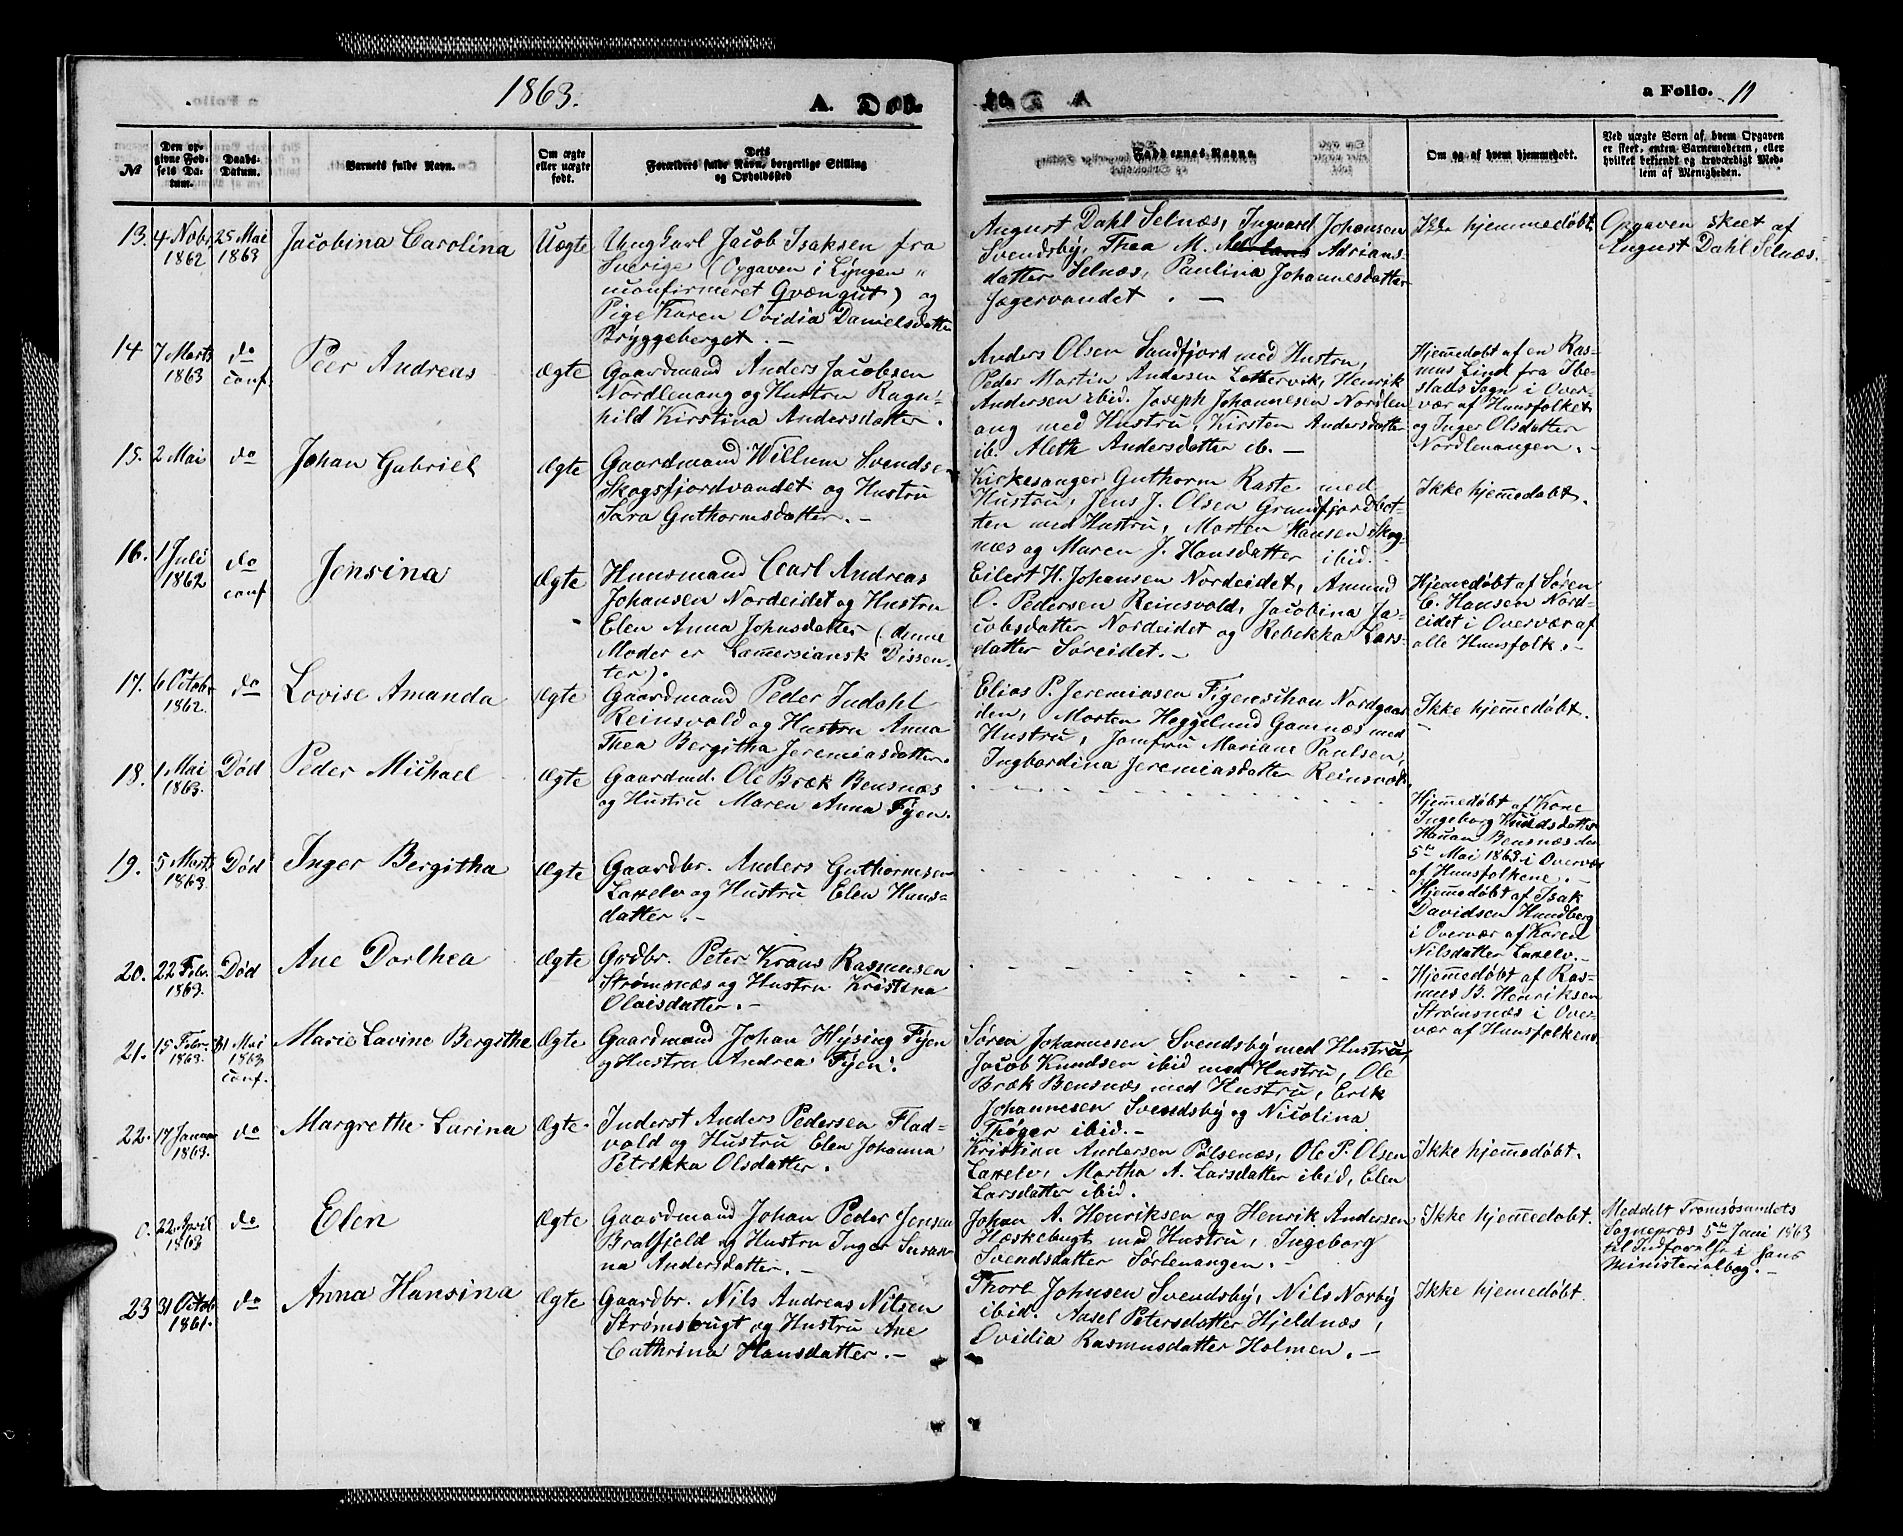 1863.
A. Døb
a Folio. 11
№
Den opgivne Fødsels Datum.
Daabs-Datum.
Barnets fulde Navn.
Om ægte eller uægte født.
Dets Forældres fulde Navn, borgerlige Stilling og Opholdssted
Faddernes Navne.
Om og af hvem hjemmedøbt.
Ved uægte Børn af hvem Opgaven er skeet, enten Barnemoderen, eller hvilket bekjendt og troværdigt Medlem af Menigheden.
13. 4 Nobr 1862
25 Mai 1863
Jacobina Carolina
Uægte
Ungkarl Jacob Isaksen fra
Sverige (Opgaven i Lyngen "
uconfirmeret Qvængut) og
Pige Karen Ovidia Danielsdatter
Bryggeberget. –
August Dahl Selnæs, Ingvard Johansen
Svendsby, Thea M. Adrians-
datter Selnæs, Paulina Johannesdatter
Jægervandet. –
Ikke hjemmedøbt
Opgaven skeet af
August Dahl Selnæs.
14 7 Marts 1863
do conf.
Peer Andreas
Ægte
Gaardmand Anders Jacobsen
Nordlenang og Hustru Ragn-
hild Kirstina Andersdatter.
Anders Olsen Sandfjord med Hustru,
Peder Martin Andersen Lattervik, Henrik
Andersen ibid. Joseph Johannesen Nordlen
ang med Hustru, Kirsten Andersdatter
ib. Aleth Andersdatter ib. –
Hjemmedøbt af en Ras-
mus Lind fra Ibe-
stads Sogn i Over-
vær af Huusfolket
og Inger Olsdatter
Nordlenangen. –
15. 2 Mai
do
Johan Gabriel
Ægte
Gaardmand Willum Svendse
Skogsfjordvandet og Hustru
Sara Guthormsdatter. –
Kirkesanger Guthorm Raste med
Hustru, Jens J. Olsen Grundfjordbot-
ten med Hustru, Morten Hansen Skog-
næs og Maren J. Hansdatter ibid.
Ikke hjemedøbt.
16. 1 Juli 1862
do conf
Jensina
Ægte
Huusmand Carl Andreas
Johansen Nordeidet og Hustru
Elen Anna Johnsdatter (denne
Moder er Lamersiansk Dissen-
ter).
Eilert H. Johansen Nordeidet, Amund
O. Pedersen Reinsvold, Jacobina Ja-
cobsdatter Nordeidet og Rebekka Lars-
datter Soreidet. –
Hjemedøbt af Søren
C. Hansen Nord-
eidet i Overvær af
alle Huusfolk. –
17. 6 Octobr 1862.
do
Lovise Amanda
Ægte
Gaardmand Peder Indahl
Reinsvold og Hustru Anna
Thea Bergitha Jeremiasdatter.
Elias P. Jeremiasen Nordgaar
den, Morten Heggelund Gamnæs med
Hustru, Jomfru Mariane Paulsen,
Ingbordina Jeremiasdatter Reinsvold.
Ikke hjemedøbt.
18. 1 Mai 1863.
Død
Peder Michael
Ægte
Gaardmd. Ole Bræk Bensnæs
og Hustru Maren Anna Fyen.
Hjemedøbt af Kone
Ingeborg Knudsdatter
Hauan Bensnæs den
5te Mai 1863 i Overvær
af Huusfolkene. –
19. 5 Marts 1863.
Død
Inger Bergitha
Ægte
Gaardbr. Anders Guthormsen
Laxelv og Hustru Elen Hans-
datter. –
Hjemedøbt af Isak
Davidsen Hundberg
i Overvær af Karen
Nilsdatter Laxelv. –
20. 22 Febr. 1863.
Død
Ane Dorthea
Ægte
Grdbr. Peter Kraus Rasmusen
Strømsnæs og Hustru Kristina
Olaisdatter. –
Hjemedøbt af Ras-
mus B. Henriksen
Strømsnæs i Over-
vær af Huusfolkene.
21. 15 Febr. 1863.
31 Mai 1863 conf.
Marie Lavine Bergithe
Ægte
Gaardmand Johan Hysing Fyen
og Hustru Andrea Fyen.
Søren Johannesen Svendsby med Hustru,
Jacob Knudsen ibid med Hustru, Ole
Bræk Bensnæs med Hustru, Erik
Johannesen Svendsby og Nicolina
Thøger ibid. –
22. 17 Januar 1863.
do
Margrethe Lurina
Ægte
Inderst Anders Pedersen Flad-
vold og Hustru Elen Johanna
Petrikka Olsdatter.
Kristian Andersen Pølsenæs, Ole P. Olsen
Laxelv, Martha A. Larsdatter ibid, Elen
Larsdatter ibid.
Ikke hjemedøbt.
0. 22 April 1863
do
Elen
Ægte
Gaardmand Johan Peder Jensen
Bratfjeld og Hustru Inger Susan-
na Andersdatter. –
Johan A. Henriksen og Henrik Andersen
Hæskebugt med Hustru, Ingeborg
Svendsdatter Sørlenangen. –
Ikke hjemedøbt.
Meddelt Tromsøsundets
Sognepræs 5te Juni 1863
til Indførelse i hans
Ministerialbog. –
23 31 Octob 1861.
do
Anna Hansina
Ægte
Gaardbr. Nils Andreas Nilsen
Strømsbugt og Hustru Ane
Cathrina Hansdatter. –
Thorl Johnsen Svendsby, Nils Norby
ibid. Aasel Petersdatter Hjeldnæs,
Ovidia Rasmusdatter Holmen. –
Ikke hjemedøbt.